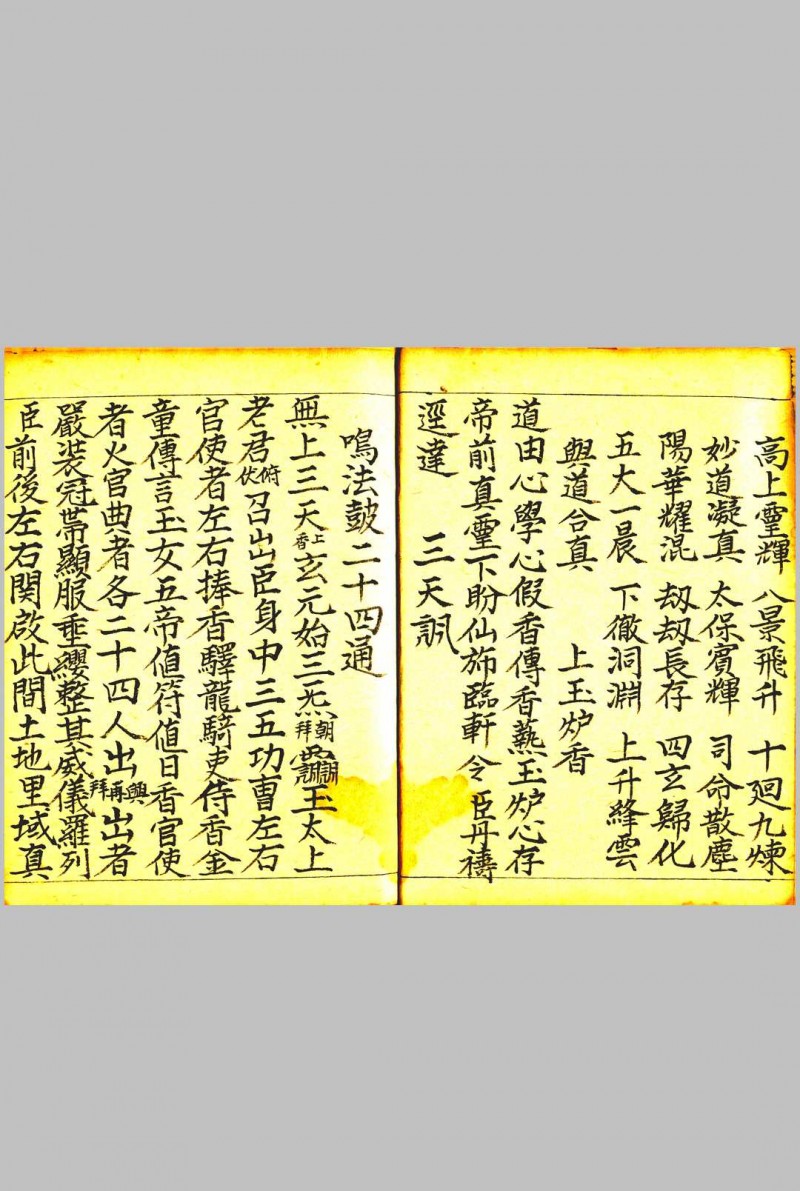 高上靈輝　八景飛升　十廻九煉
妙道凝真　太保賓輝　司命散塵
陽華耀混　刼刼長存　四玄歸化
五大一晨　下徹洞淵　上升絳雲
與道合真　上玉炉香
道由心學心假香傳香爇玉炉心存
帝前真靈下盼仙斾臨軒令臣丹禱
逕達　三天諷
鳴法鼓二十四通
無上三天上香玄元始三炁朝拜太上
老君俯伏召出臣身中三五功曹左右
官使者左右捧香驛龍騎吏侍香金
童傳言玉女五帝值符值日香官使
者火官典者各二十四人出興再拜出者
嚴裝冠帶顯服垂纓整其威儀羅列
臣前後左右関啟此間土地里域真